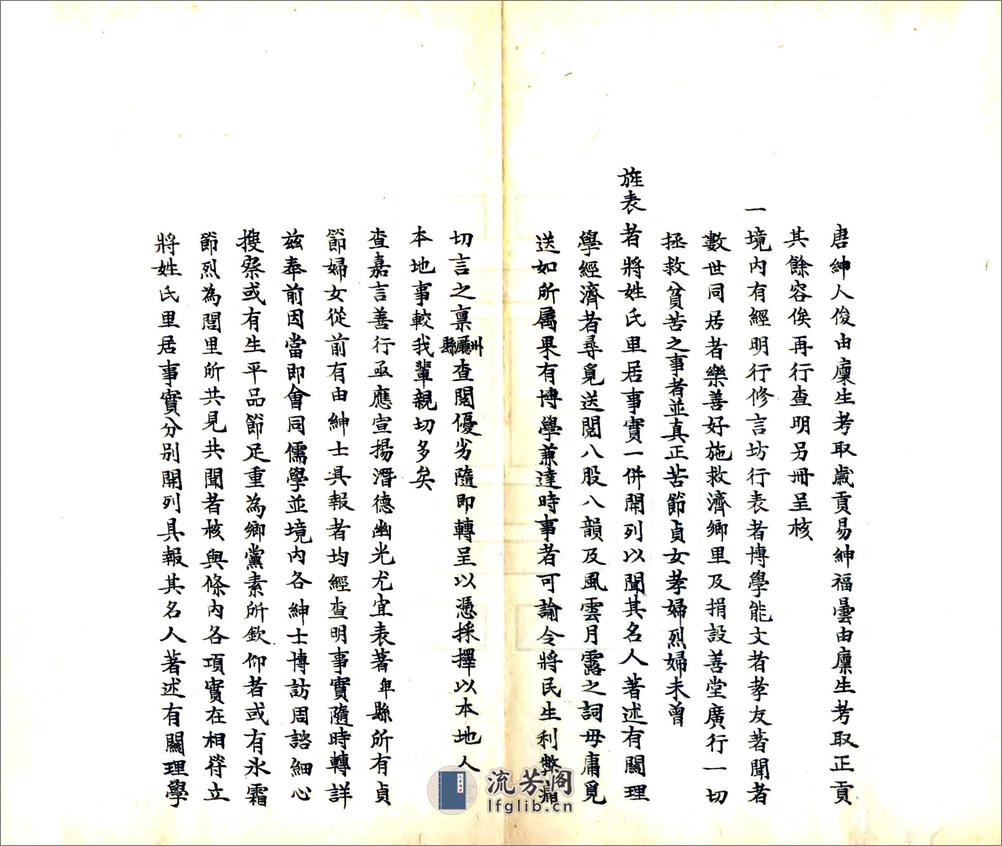 唐紳人俊由廩生考取歲貢易紳福曇由廩生考取正貢
其餘容俟再行查明另冊呈核
一境內有經明行修言坊行表者博學能文者孝友著聞者
數世同居者樂善好施救濟鄉里及捐設善堂廣行一切
拯救貧苦之事者並真正苦節貞女孝婦烈婦未曾
旌表者將姓氏里居事實一併開列以聞其名人著述有關理
學經濟者尋覓送閱八股八韻及風雲月露之詞毋庸覓
送如所屬果有博學兼達時事者可諭令將民生利弊痛
切言之稟州廳縣查閱優劣隨即轉呈以憑採擇以本地人
本地事較我輩親切多矣
查嘉言善行亟應宣揚潛德幽光尤宜表著卑縣所有貞
節婦女從前有由紳士具報者均經查明事實隨時轉詳
茲奉前因當即會同儒學並境內各紳士博訪周諮細心
搜察或有生平品節足重為鄉黨素所欽仰者或有氷霜
節烈為閭里所共見共聞者核與條內各項實在相符立
將姓氏里居事實分別開列具報其名人著述有關理學
流芳阁
lfglib.cn